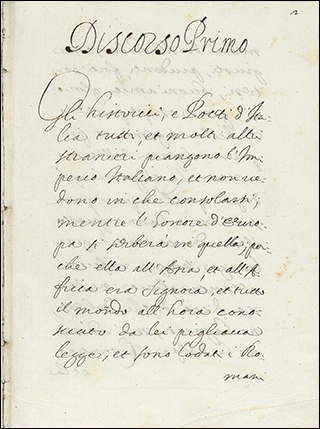 2
Discorso Primo
Gli historici, e Poeti d'Ita-
lia tutti, et molti altri
stranieri piangono l'Im-
perio Italiano, et non ue-
dono in che consolarsi;
mentre l'honore d'Euro-
pa si serbera in quella, poi-
che ella all'Asia, et all'A-
frica era Signora, et tutto
il mondo all'hora cono-
sciuto da lei pigliaua
legge; et sono lodati i Ro-
mani